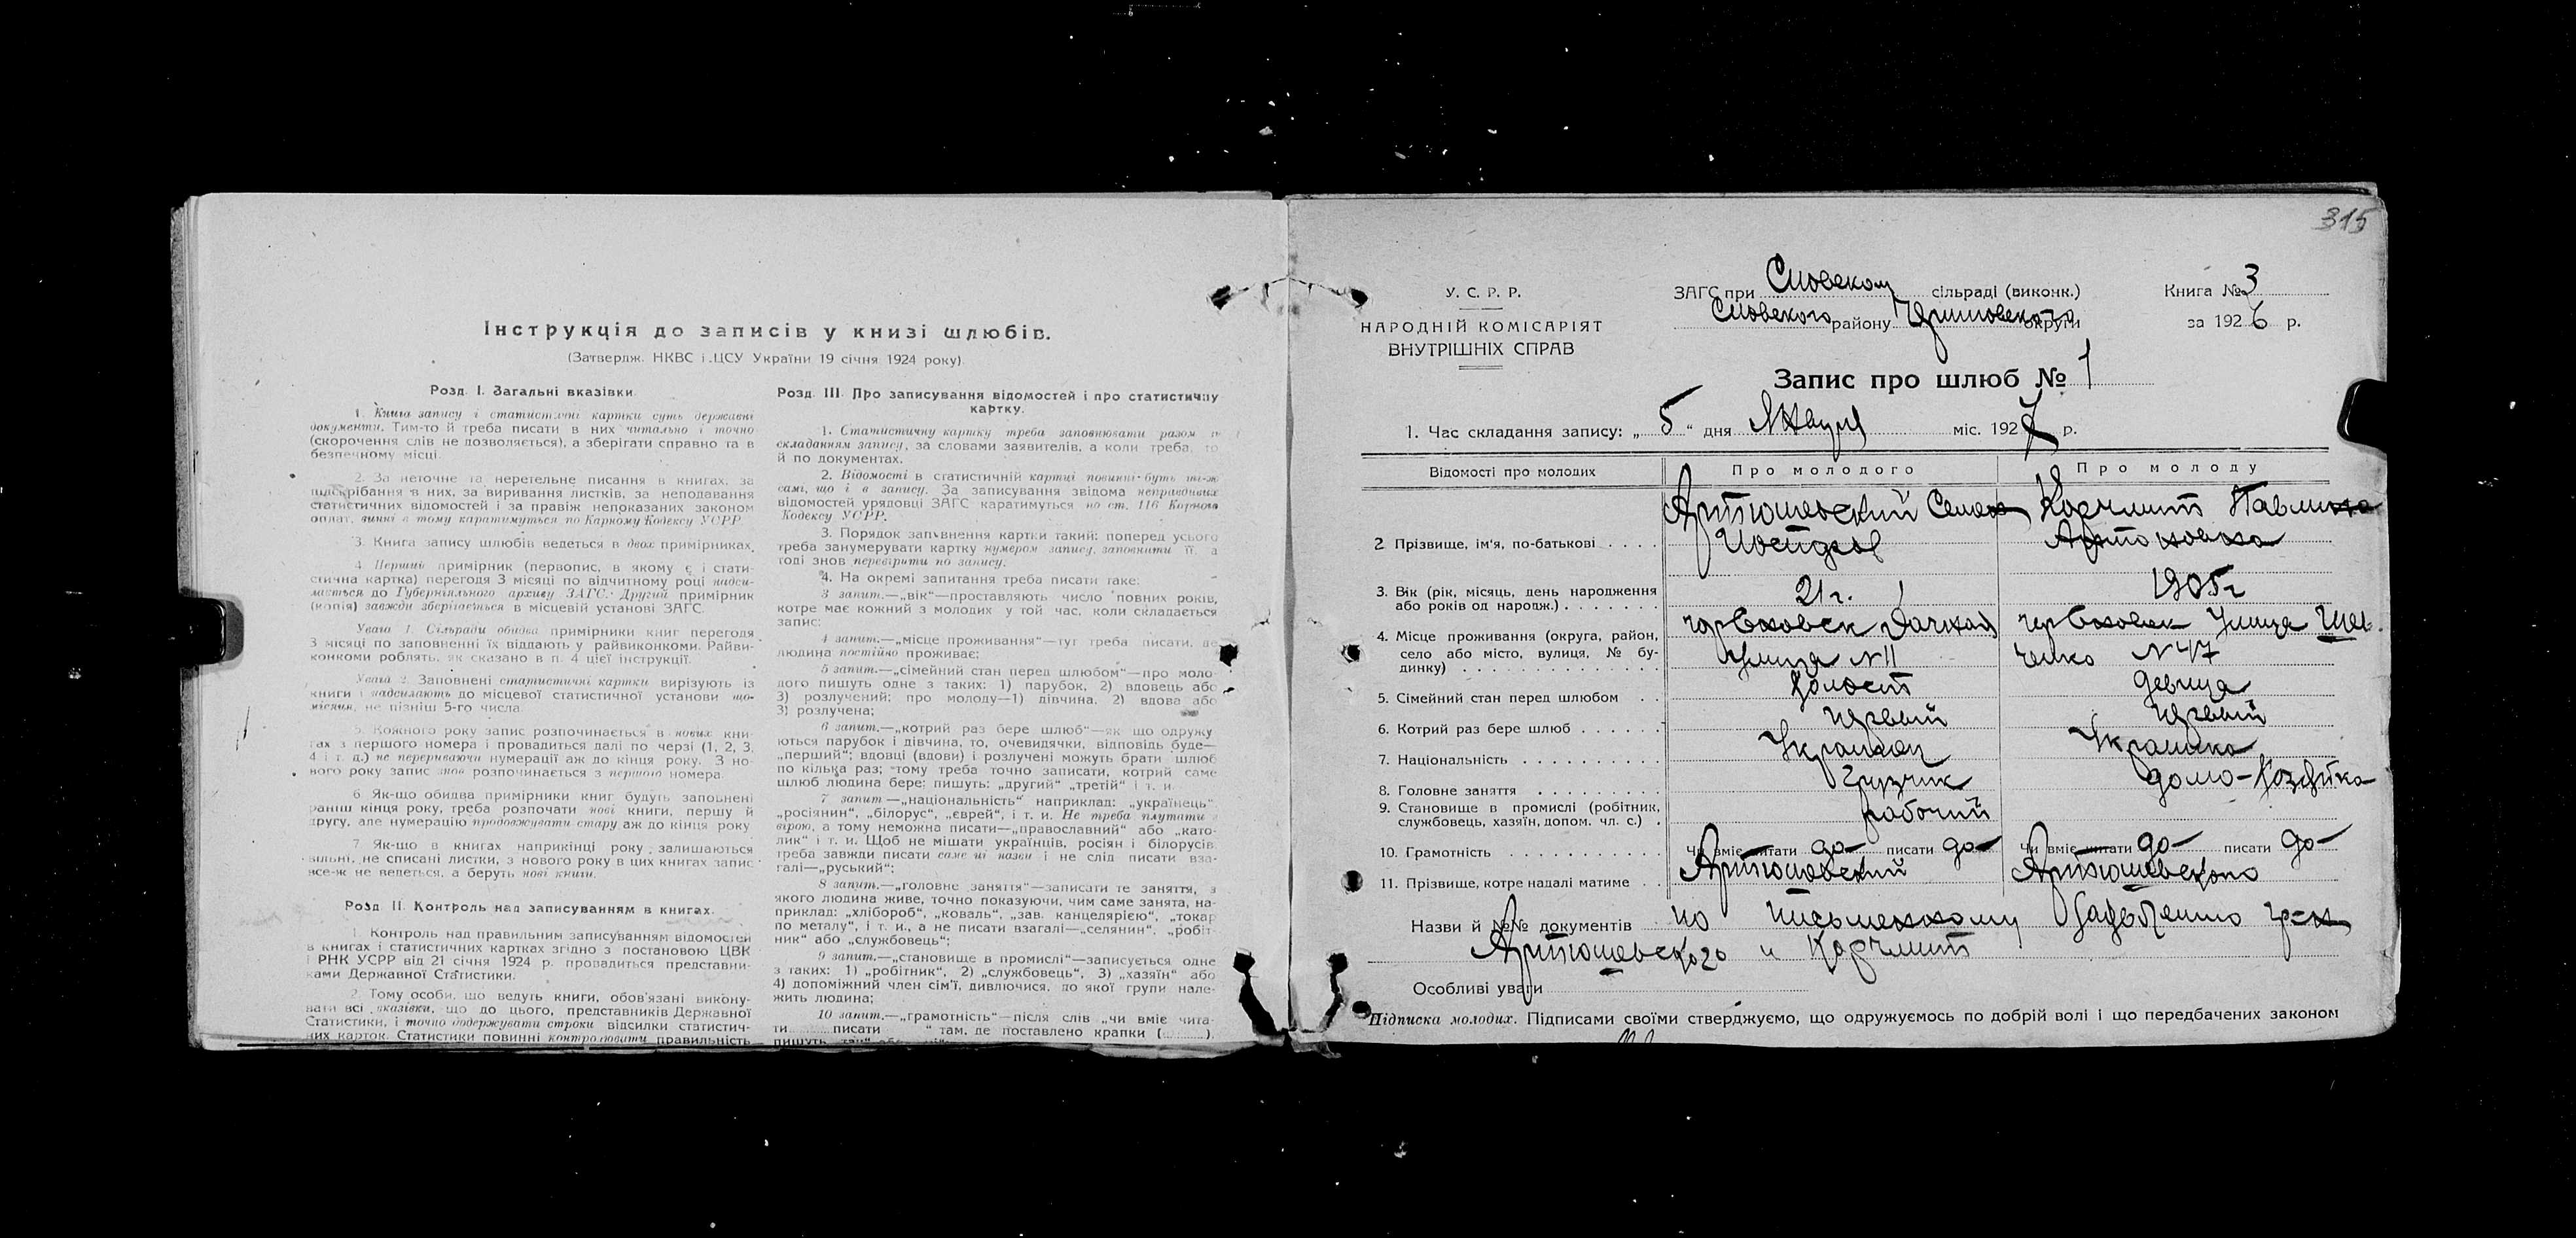 Інструкція до записів у книзі шлюбів.
(Затвердж. НКВС і ЦСУ України 19 січня 1924 року).
Розд. I. Загальні вказівки.
1. Книга запису і статистичні картки суть державні
документи. Тим-то й треба писати в них читально і точно
(скорочення слів не дозволяється), а зберігати справно та в
безпечному місці.
2. За неточне та неретельне писання в книгах, за
підскрібання в них, за виривання листків, за неподавання
статистичних відомостей і за правіж непоказаних законом
оплат, винні в тому каратимуться по Карному Кодексу УСРР.
3. Книга запису шлюбів ведеться в двох примірниках.
4. Перший примірник (первопис, в якому є і стати-
стична картка) перегодя 3 місяці по відчитному році надси-
лається до Губерніяльного архиву ЗАГС. Другий примірник
(копія) завжди зберігається в місцевій установі ЗАГС.
Увага 1. Сільради обидва примірники книг перегодя
3 місяці по заповненні їх віддають у райвиконкоми. Райви-
конкоми роблять, як сказано в п. 4 цієї інструкції.
Увага 2. Заповнені статистичні картки вирізують із
книги і надсилають до місцевої статистичної установи що-
місяця, не пізніш 5-го числа.
5. Кожного року запис розпочинається в нових кни-
гах з першого номера і провадиться далі по черзі (1, 2, 3,
4 і т. д.) не перериваючи нумерації аж до кінця року. З но-
вого року запис знов розпочинається з першого номера.
6. Як-що обидва примірники книг будуть заповнені
раніш кінця року, треба розпочати нові книги, першу й
другу, але нумерацію продовжувати стару аж до кінця року.
7. Як-що в книгах наприкінці року залишаються
вільні, не списані листки, з нового року в цих книгах запис
все-ж не ведеться, а беруть нові книги.
Розд. II. Контроль над записуванням в книгах.
1. Контроль над правильним записуванням відомостей
в книгах і статистичних картках згідно з постановою ЦВК
і РНК УСРР від 21 січня 1924 р. провадиться представни-
ками Державної Статистики.
2. Тому особи, що ведуть книги, обов'язані викону-
вати всі вказівки, що до цього, представників Державної
Статистики, і точно додержувати строки відсилки статистич-
них карток. Статистики повинні контролювати правильність
Розд. III. Про записування відомостей і про статистичну
картку.
1. Статистичну картку треба заповнювати разом із
складанням запису, за словами заявителів, а коли треба, то
й по документах.
2. Відомості в статистичній картці повинні буть ті-ж
самі, що і в запису. За записування звідома неправдивих
відомостей урядовці ЗАГС каратимуться по ст. 116 Карного
Кодексу УСРР.
3. Порядок заповнення картки такий: поперед усього
треба занумерувати картку нумером запису, заповнити її, а
тоді знов перевірити по запису.
4. На окремі запитання треба писати таке:
3 запит.—„вік"—проставляють число повних років,
котре має кожний з молодих у той час, коли складається
запис;
4 запит.—„місце проживання"—тут треба писати, де
людина постійно проживає;
5 запит.—„сімейний стан перед шлюбом"—про моло-
дого пишуть одне з таких: 1) парубок, 2) вдовець або
3) розлучений; про молоду—1) дівчина, 2) вдова або
3) розлучена;
6 запит.—„котрий раз бере шлюб"—як що одружу
ються парубок і дівчина, то, очевидячки, відповідь буде—
„перший"; вдовці (вдови) і розлучені можуть брати шлюб
по кілька раз; тому треба точно записати, котрий саме
шлюб людина бере; пишуть: „другий" „третій" і т. и.
7 запит.—„національність" наприклад: „українець"
„росіянин", „білорус", „єврей", і т. и. Не треба плутати з
вірою, а тому неможна писати—„православний" або „като-
лик" і т. и. Щоб не мішати українців, росіян і білорусів,
треба завжди писати саме ці назви і не слід писати вза-
галі—„руський";
8 запит.—„головне заняття"—записати те заняття, з
якого людина живе, точно показуючи, чим саме занята, на-
приклад: „хлібороб", „коваль", „зав. канцелярією", „токар
по металу", і т. и., а не писати взагалі—„селянин", „робіт-
ник" або „службовець";
9 запит.—„становище в промислі"—записується одне
з таких: 1) „робітник", 2) „службовець", 3) „хазяїн" або
4) допоміжний член сім'ї, дивлючися, до якої групи нале-
жить людина;
10 запит.—„грамотність"—після слів „чи вміє чита-
ти..........писати.........." там, де поставлено крапки (..........),
315
У. С. Р. Р.
НАРОДНІЙ КОМІСАРІЯТ
ВНУТРІШНІХ СПРАВ
ЗАГС при Смовском сільраді (виконк.)
Смовского району округи
Книга № 3
за 1926 р.
Запис про шлюб № 1
1. Час складання запису: „5" дня Января міс. 1927 р.
Відомості про молодих Про молодого Про молоду
2. Прізвище, ім'я, по-батькові Артюшевский Семен Павлина
Антоновна
3. Вік (рік, місяць, день народження
або років од народж.) 21 г. 1905 г
4. Місце проживання (округа, район,
село або місто, вулиця, № бу-
динку) Дачная улица N 11 улица Шев-
ченко N 47
5. Сімейний стан перед шлюбом холост девица
6. Котрий раз бере шлюб первый первый
7. Національність Украинец Украинка
8. Головне заняття Грузчик домо-хозяйка
9. Становище в промислі (робітник,
службовець, хазяїн, допом. чл. с.) рабочий
10. Грамотність Чи вміє читати да писати да Чи вміє читати да писати да
11. Прізвище, котре надалі матиме Артюшевский Артюшевского
Назви й №№ документів по письменному гр-н
Артюшевского и
Особливі уваги
Підписка молодих. Підписами своїми стверджуємо, що одружуємось по добрій волі і що передбачених законом